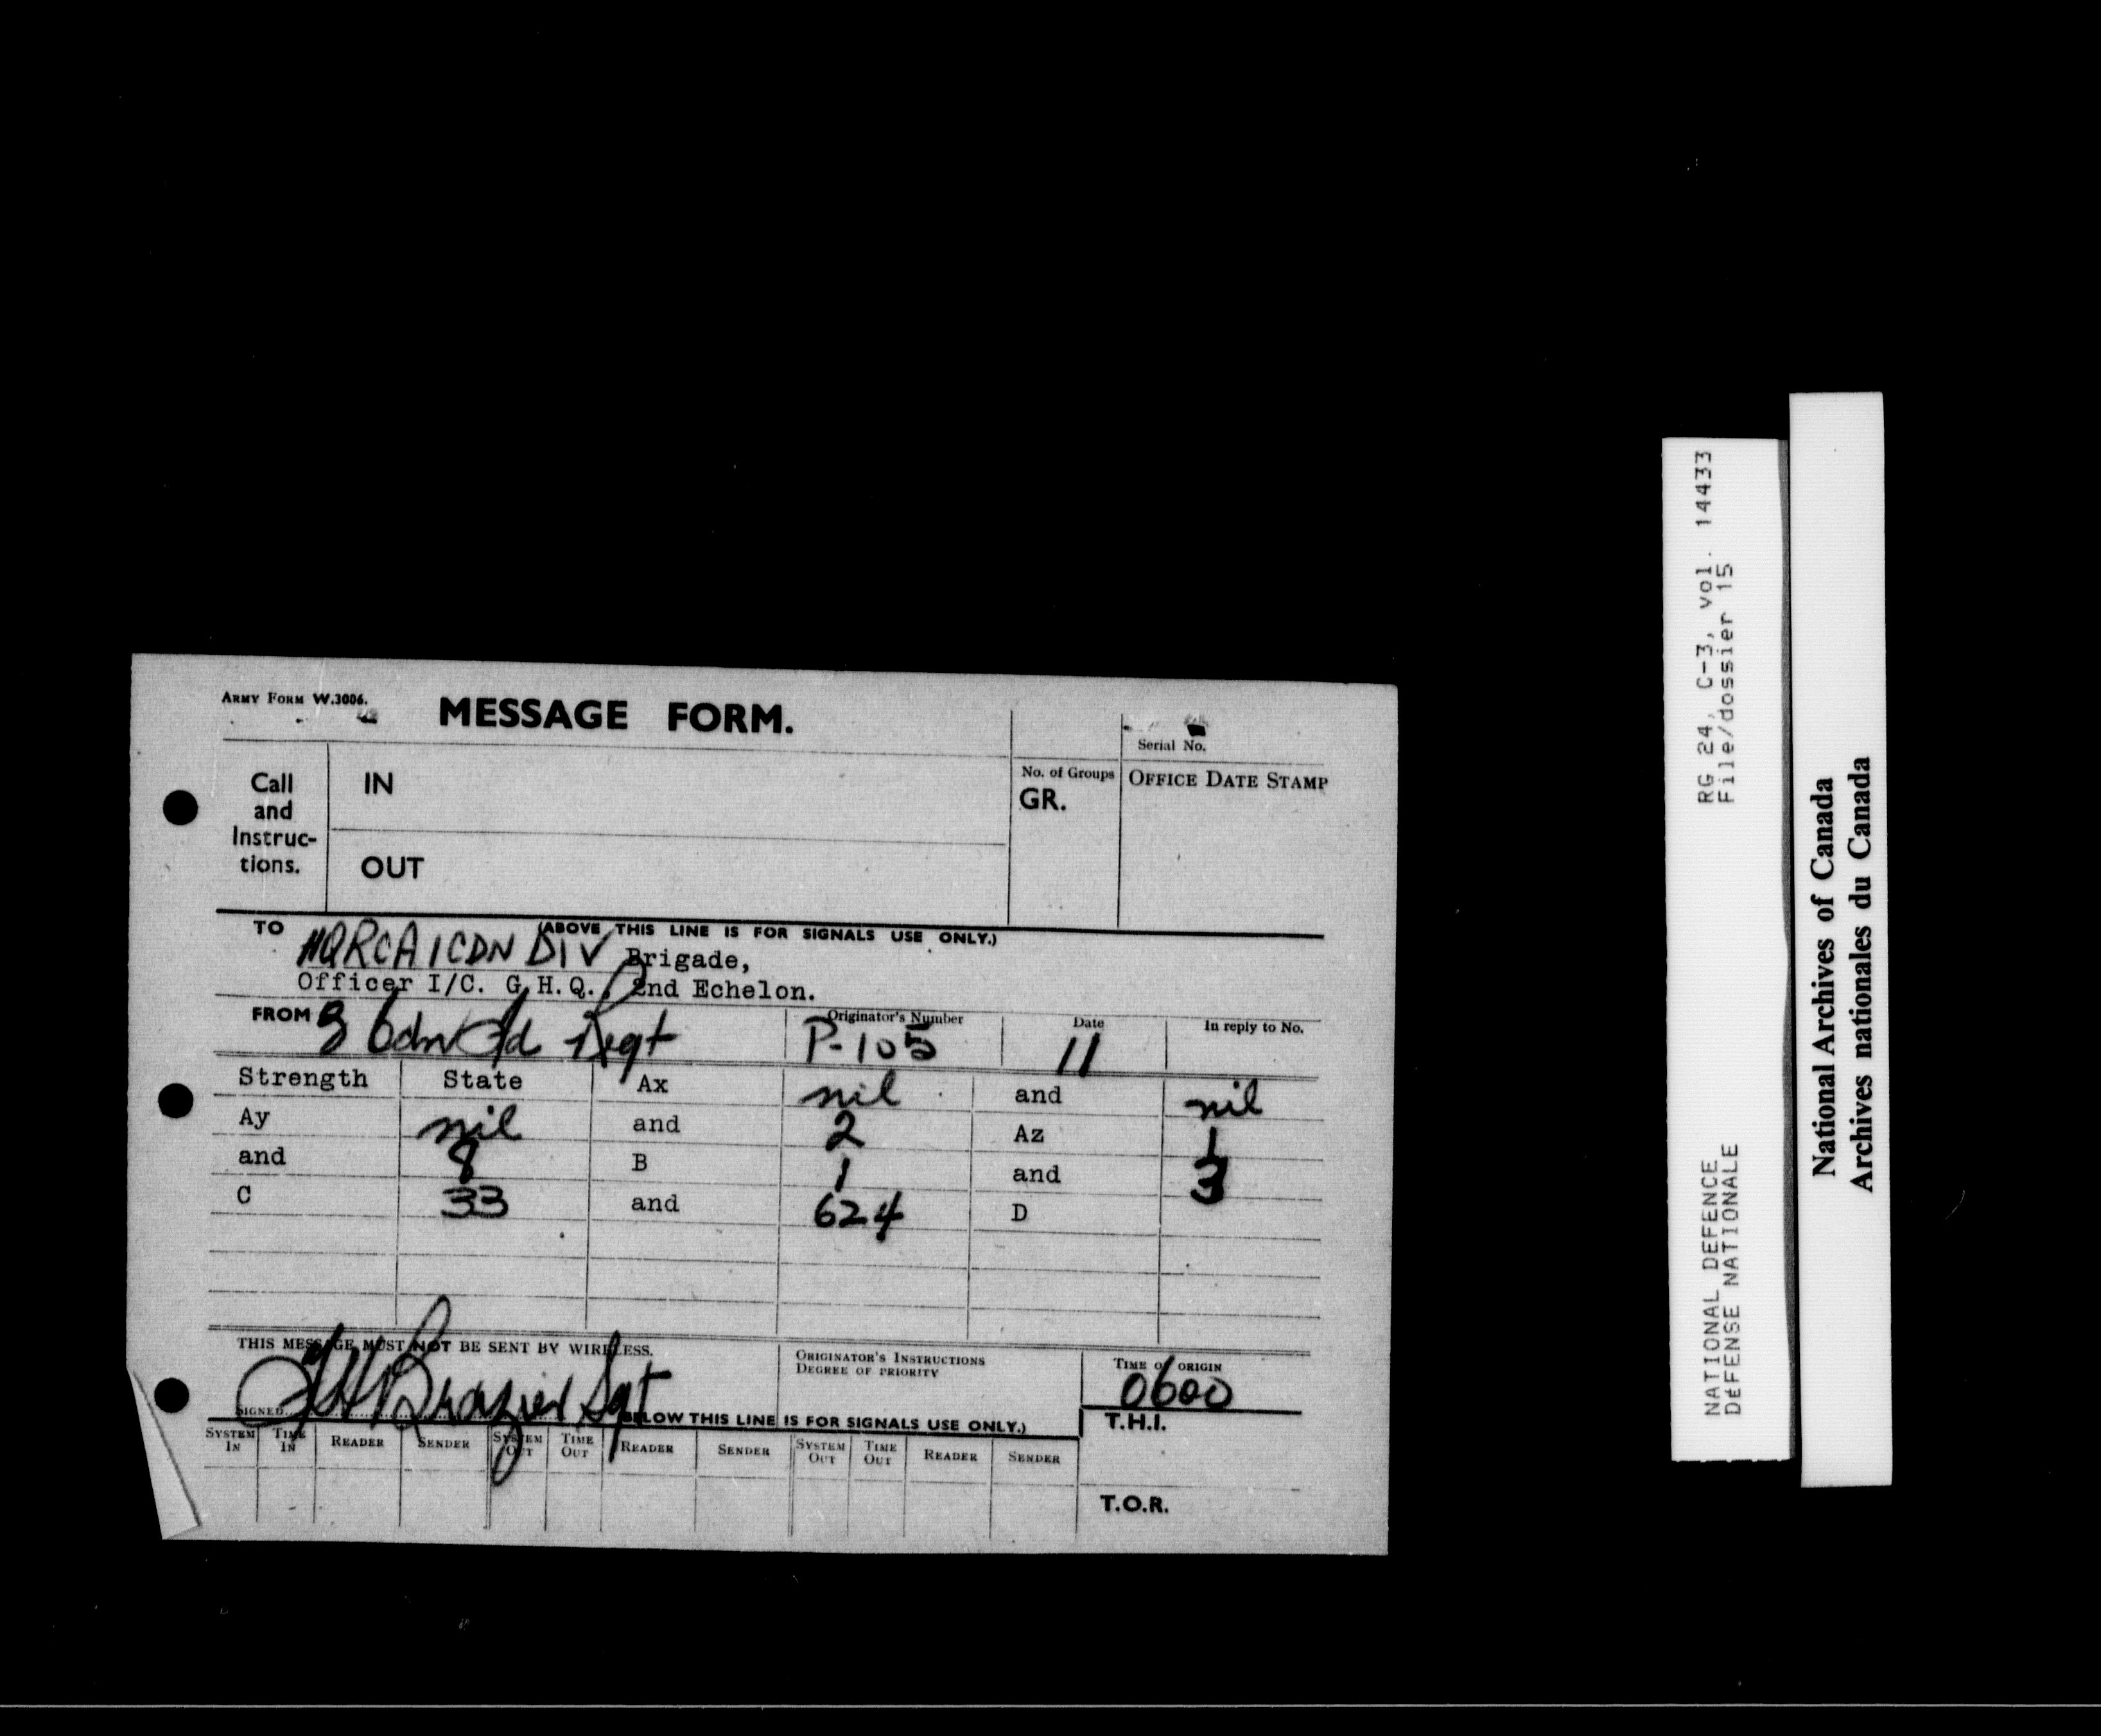 ARMY FORM W.3006.
MESSAGE FORM.
Serial No.
Call and Instruc- tions.
IN
OUT
No. of Groups
GR.
OFFICE DATE STAMP
(ABOVE THIS LINE IS FOR SIGNALS USE ONLY.)
TO HQRCA 1 CDN DIV Brigade,
Officer I/C. G.H.Q., 2nd Echelon.
FROM 3 Cdn Fd Regt Originator's Number P-105 Date 11 In reply to No.
Strength State Ax nil and nil
Ay nil and 2 Az 1
and 8 B 1 and 3
C 33 and 624 D
THIS MESSAGE MUST NOT BE SENT BY WIRELESS.
ORIGINATOR'S INSTRUCTIONS
DEGREE OF PRIORITY
TIME OF ORIGIN
0600
SIGNED Brazier Sgt
(BELOW THIS LINE IS FOR SIGNALS USE ONLY.)
T.H.I.
SYSTEM IN TIME IN READER SENDER SYSTEM OUT TIME OUT READER SENDER SYSTEM OUT TIME OUT READER SENDER
T.O.R.
RG 24, C-3, vol. 14433
File/dossier 15
NATIONAL DEFENCE
DéFENSE NATIONALE
National Archives of Canada
Archives nationales du Canada